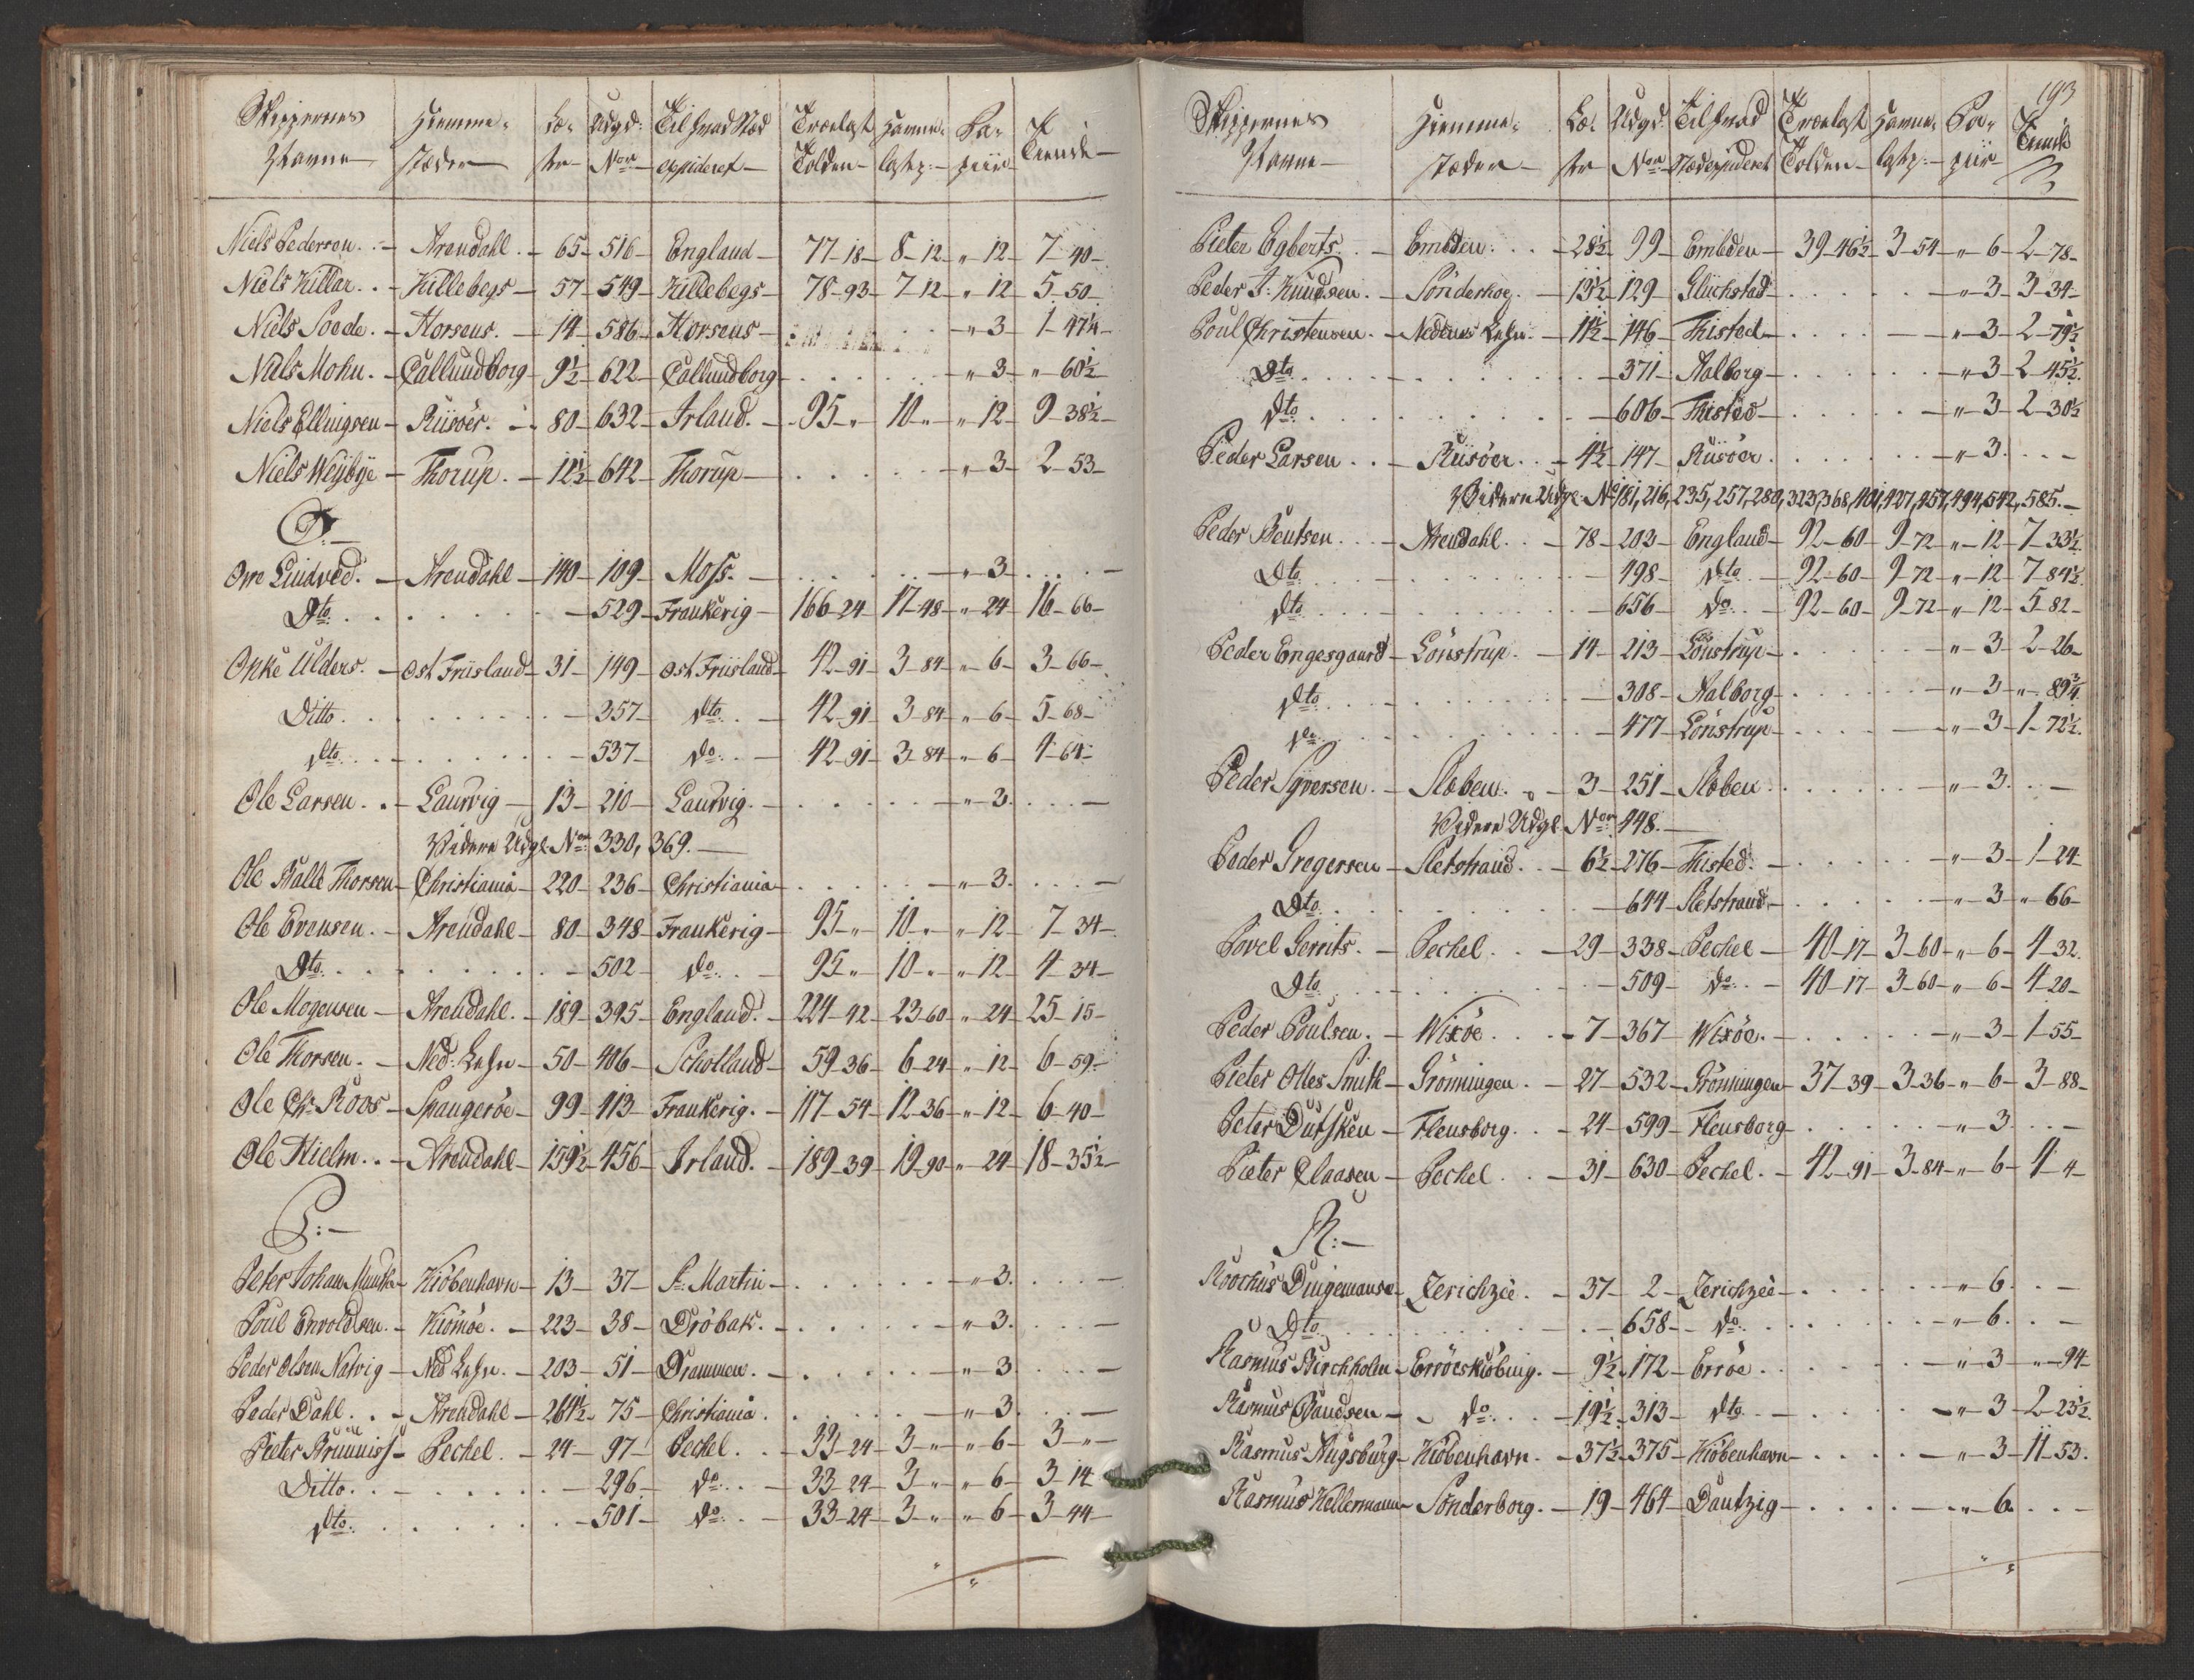 Skippernes Hiemme- Læ- Udgd: Til hvad Stæd Trælast Havne- Pa- Tiende
Nafne stæder ster Nor expideret Tolden lastp: piir
Niels Pedersen. Arendahl. 65 516 England 77-18 8-12 „-12 7-40
Niels Killar. Killebegs 57 549 Killebegs 78-93 7-12 „-12 5-50
Niels Soede. Horsens. 14 586 Horsens „-3 1-47¼
Niels Mohn. Callundborg 9½ 622 Callundborg „-3 „-60½
Niels Ellingsen Riisöer. 80 632 Irland. 95-„ 10-„ „-12 9-38½
Niels Weybye Thorup. 12½ 642 Thorup „-3 2-53
O:
Ove Lindved. Arendahl 140 109 Moss. „-3
Dto 529 Frankerig 166-24 17-48 „-24 16-66
Onke Ulders. Ost Friisland 31 149 Ost Friisland 42-91 3-84 „-6 3-66
Ditto 357 dto 42-91 3-84 „-6 5-68
dto 537 do 42-91 3-84 „-6 4-64
Ole Larsen. Laurvig 13 210 Laurvig. „-3
Videre Udgl. Nor 330, 369.
Ole Halle Thorsen Christiania 220 236 Christiania „-3
Ole Evensen. Arendahl 80 348 Frankerig 95-„ 10-„ „-12 7-34
Dto 502 do 95-„ 10-„ „-12 4-34
Ole Mogensen Arendahl. 189 395 England. 224-42 23-60 „-24 25-15
Ole Thorsen. Ned: Lehn 50 406 Schotland 59-36 6-24 „-12 6-59
Ole Chr. Roos Spangeröe 99 413 Frankerig. 117-54 12-36 „-12 6-40
Ole Hielm. Arendahl 159½ 456 Irland. 189-39 19-90 „-24 18-35½
P:
Peter Johan Munth Kiöbenhavn 13 37 St. Martin „-3
Poul Envoldsen. Kiömöe. 223 38 Dröbak. „-3
Peder Olsen Natvig Ned Lehn. 203 51 Drammen. „-3
Peder Dahl. Arendahl 264½ 75 Christiania. „-3
Pieter Bruuniss Peckel. 24 97 Peckel. 33-24 3-„ „-6 3-„
Ditto 296 do 33-24 3-„ „-6 3-14
dto 501 do 33-24 3-„ „-6 3-44
193
Skippernes Hiemme- Læ- Udgd. Til hvad Trælast Havne- Pa- Tiende
Nafne stæder ster Nor Stæd expideret Tolden lastp: piir
Pieter Egberts. Embden. 28½ 99 Embden 39-46½ 3-54 „-6 2-78
Peder J. Knudsen. Sönderhoe. 13½ 129 Glückstad „-3 3-34
Poul Christensen. Nedenes Lehn. 11½ 146 Thisted „-3 2-79½
Dto 371 Aalborg „-3 2-45½
dto 606 Thisted „-3 2-30½
Peder Larsen Riisöer. 4½ 147 Riisöer „-3
Videre Udgl. No 181, 216, 235, 257, 280, 323, 368, 401, 427, 457, 494, 542, 585.
Peder Bentsen. Arendahl. 78 203 England 92-60 9-72 „-12 7-33½
Dto 498 dto 92-60 9-72 „-12 7-84½
dto 656 do 92-60 9-72 „-12 5-82
Peder Engesgaard Lönstrup. 14 213 Lönstrup „-3 2-26
dto 308 Aalborg „-3 „-89¾
do 477 Lönstrup „-3 1-72½
Peder Syversen. Sleben. 3 251 Sleben „-3
Videre Udgl. Nor 448.
Peder Gregersen Sletstrand. 6½ 276 Thisted. „-3 1-24
Dto 644 Sletstrand „-3 „-66
Povel Gerrits. Peckel. 29 338 Peckel 40-17 3-60 „-6 4-32
Dto 509 do 40-17 3-60 „-6 4-20
Peder Poulsen. Wixöe. 7 367 Wixöe. „-3 1-55
Pieter Olles Smith Grönningen. 27 532 Grönningen 37-39 3-36 „-6 3-88
Peter Dutsken Flensborg. 24 599 Flensborg „-3
Pieter Claasen Peckel. 31 630 Peckel. 42-91 3-84 „-6 4-4
R:
Roochus Dingemanse Zerichzee. 37 2 Zerichzee „-6
Dto 658 do „-6
Rasmus Birchholm Erröeskiöbing. 9½ 172 Erröe „-3 „-94
Rasmus do 19½ 313 dto „-3 2-23½
Rasmus Augsburg Kiöbenhavn. 37½ 375 Kiöbenhavn „-3 11-53
Rasmus Kellermann Sönderborg. 19 464 Dantzig „-6